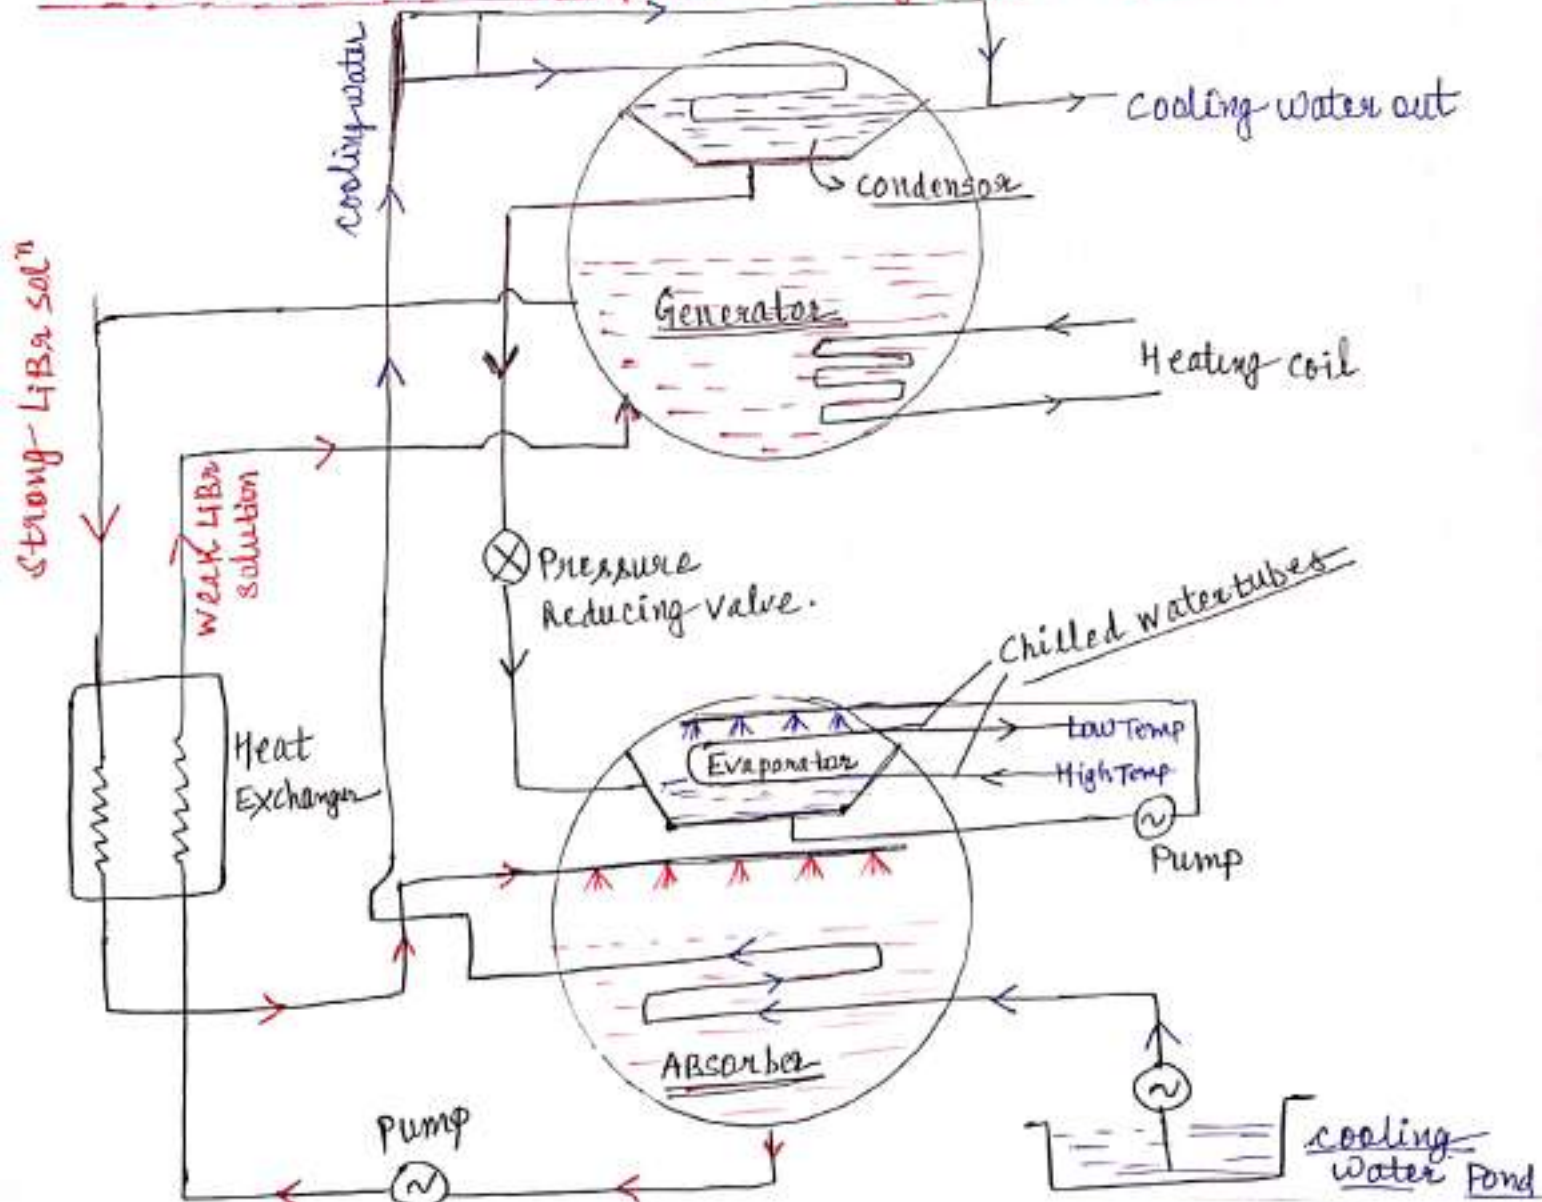 cooling water
Cooling water out
condensor
Strong LiBr solⁿ
Generator
Heating coil
Weak LiBr
solution
Pressure
Reducing valve.
Chilled water tubes
Low Temp
High Temp
Evaporator
Heat
Exchanger
Pump
Absorber
Pump
cooling
water Pond